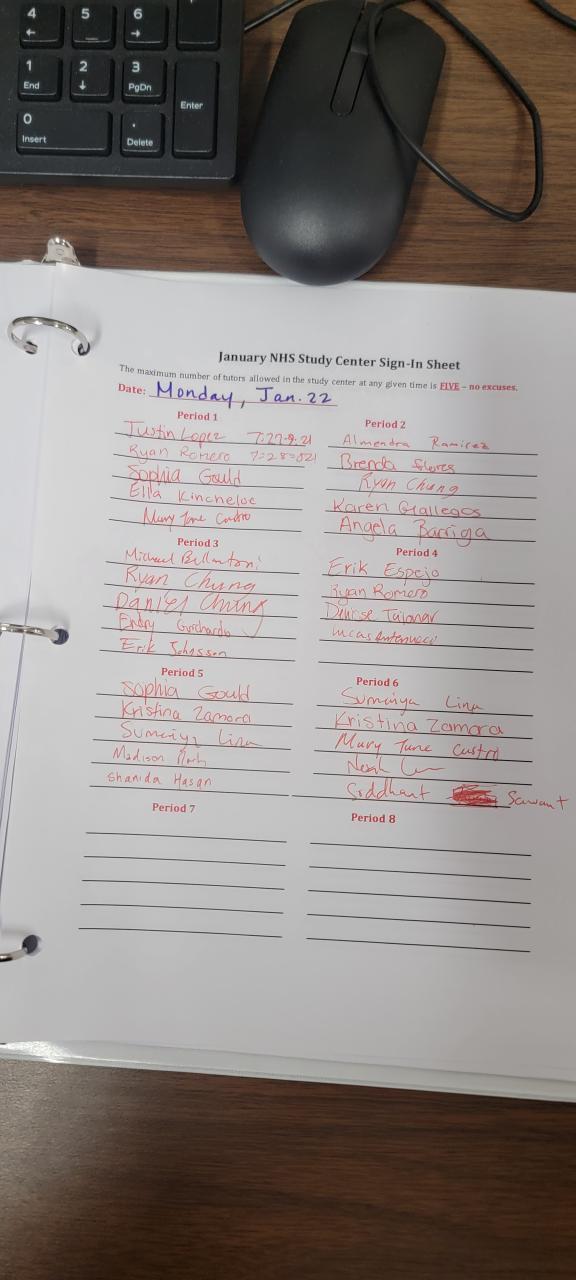 4 5 6
← → 
1 2 3
End ↓ PgDn
Enter
0 .
Insert Delete
January NHS Study Center Sign-In Sheet
The maximum number of tutors allowed in the study center at any given time is FIVE – no excuses.
Date: Monday, Jan. 22
Period 1
Justin Lopez
Ryan Romero
Sophia Gould
Ella Kincheloe
Mary Jane Castro
Period 2
Almendra Ramirez
Brenda
Ryan Chung
Karen Gallegos
Angela Barriga
Period 3
Michael
Ryan Chung
Daniel Chung
Endry
Erik Johnson
Period 4
Erik Espejo
Ryan Romero
Denise
Lucas Antonucci
Period 5
Sophia Gould
Kristina Zamora
Sumaiya
Madison
Shanida Hasan
Period 6
Sumaiya
Kristina Zamora
Mary Jane Castro
Noah
Siddhant Sawant
Period 7
Period 8